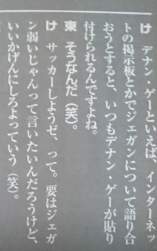 け デナン・ゲーといえば、インターネッ
トの掲示板とかでジェガンについて語り合
おうとすると、いつもデナン・ゲーが貼り
付けられるんですよね。
東 そうなんだ（笑）。
け サッカーしようゼ、って。要はジェガ
ン弱いじゃんって言いたいんだろうけど、
いいかげんにしろよっていう（笑）。